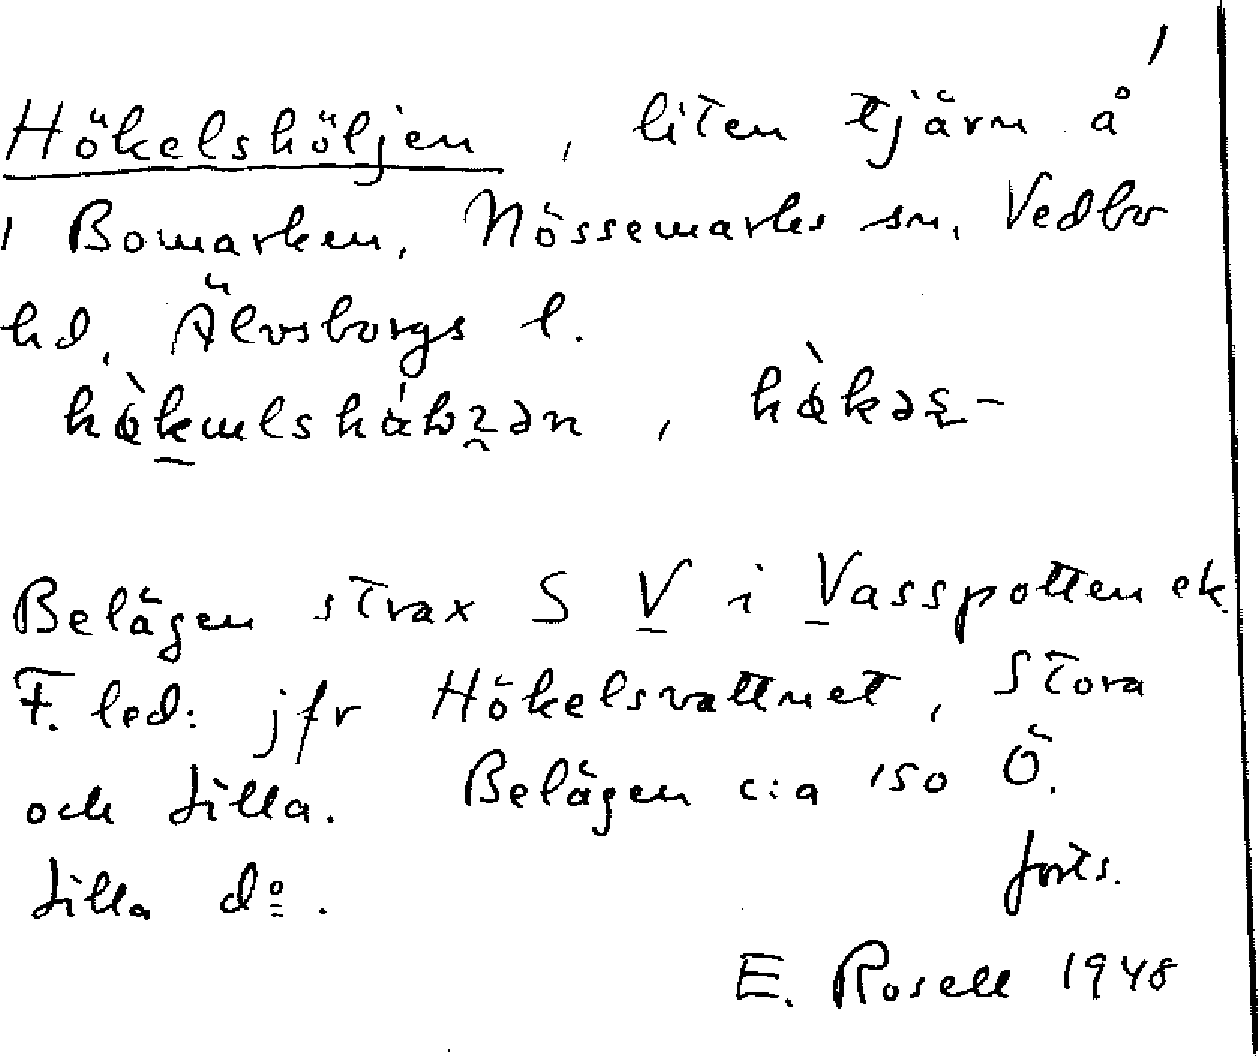 1
Hökelshöljen, liten tjärn å
1 Bomarken, Nössemarks sn, Vedbo
hd, Älvsborgs l.
Belägen strax S V i Vasspotten ek.
F. led: jfr Hökelsvattnet, Stora
och Lilla. Belägen c:a 150 Ö.
Lilla d:o.
forts.
E. Rosell 1948